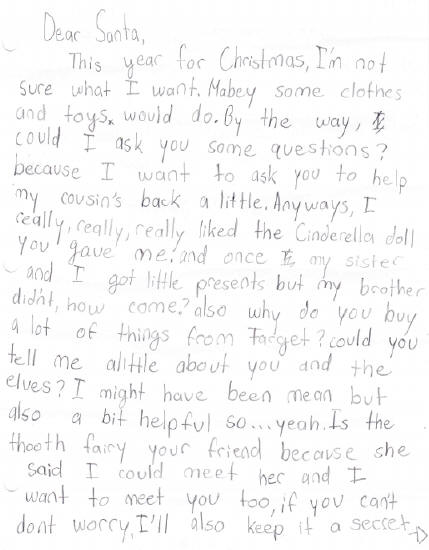 Dear Santa,
This year for Christmas, I'm not
sure what I want. Mabey some clothes
and toys. would do. By the way,
could I ask you some questions?
because I want to ask you to help
my cousin's back a little. Anyways, I
really, really, really liked the Cinderella doll
you gave me. and once my sister
and I got little presents but my brother
didn't, how come? also why do you buy
a lot of things from Target? could you
tell me alittle about you and the
elves? I might have been mean but
also a bit helpful so... yeah. Is the
thooth fairy your friend because she
said I could meet her and I
want to meet you too, if you can't
dont worry, I'll also keep it a secret→